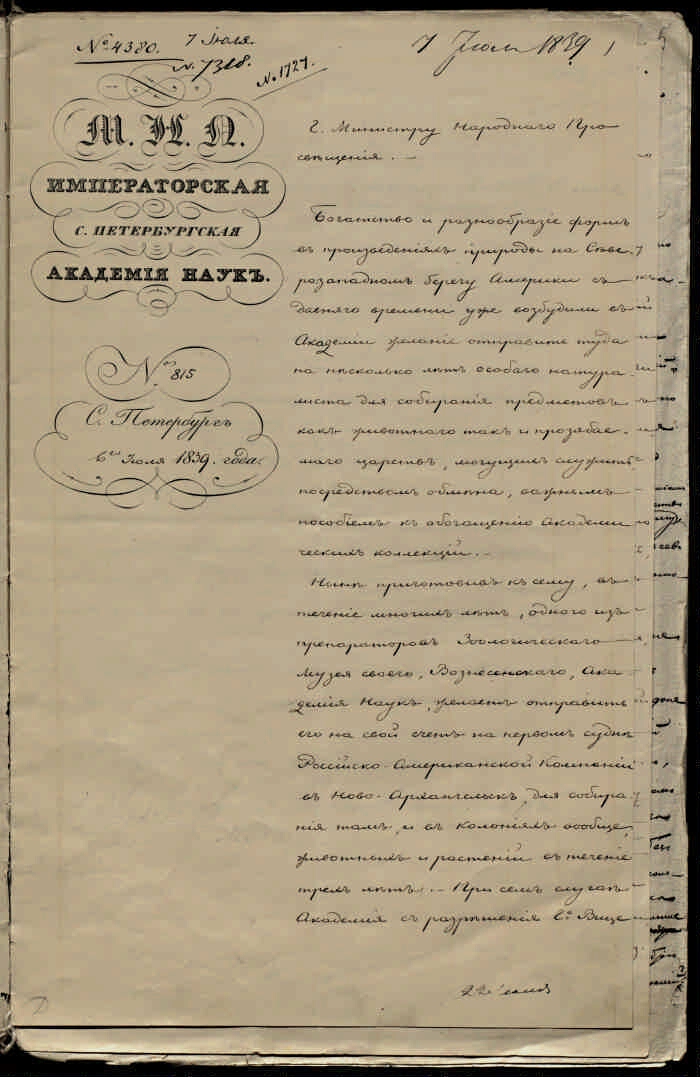 № 4380.
7 Июля.
N. 7318.
No 1727.
7 Июля 1839
М. Н. П.
ИМПЕРАТОРСКАЯ
С. ПЕТЕРБУРГСКАЯ
АКАДЕМІЯ НАУКЪ.
№ 815
С. Петербургъ
6го Іюля 1839. года.
Г. Министру Народнаго Про-
свѣщенія. —
Богатство и разнообразіе формъ
въ произведеніяхъ природы на Сѣве-
розападномъ берегу Америки съ
давняго времени уже возбудили въ
Академіи желаніе отправить туда
на нѣсколько лѣтъ особаго натура-
листа для собиранія предметовъ
какъ животнаго такъ и прозябае-
маго царствъ, могущихъ служить
посредствомъ обмѣна, важнымъ
пособіемъ къ обогащенію Академи-
ческихъ коллекцій. —
Нынѣ приготовивъ къ сему, въ
теченіе многихъ лѣтъ, одного изъ
препараторовъ Зоологическаго
Музея своего, Вознесенскаго, Ака-
демія Наукъ, желаетъ отправить
его на свой счетъ на первомъ суднѣ
Россійско-Американской Компаніи
въ Ново-Архангельскъ, для собира-
нія тамъ, и въ Колоніяхъ вообще,
животныхъ и растеній въ теченіе
трехъ лѣтъ. — При семъ случаѣ
Академія съ разрѣшенія Е.го Вице